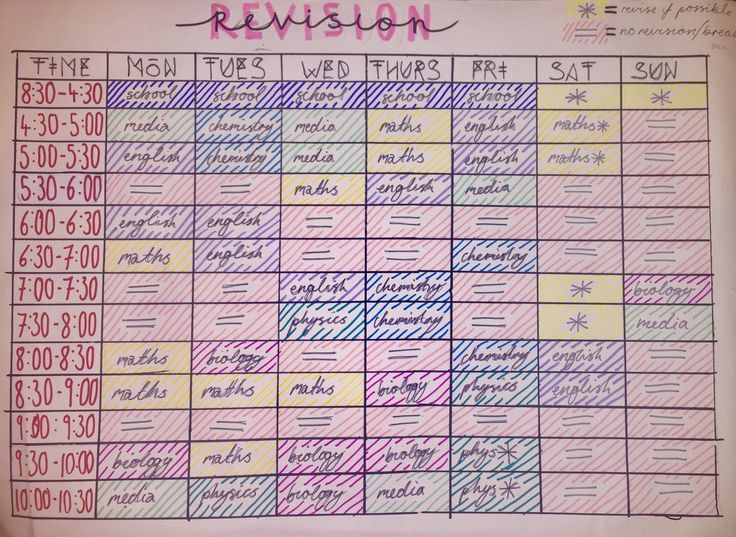 REVISION
revision
* = revise if possible
= = no revision/break
TIME MON TUES WED THURS FRI SAT SUN
8:30-4:30 school school school school school * *
4:30-5:00 media chemistry media maths english maths* =
5:00-5:30 english chemistry media maths english maths* =
5:30-6:00 = = maths english media = =
6:00-6:30 english english = = = = =
6:30-7:00 maths english = = chemistry = =
7:00-7:30 = = english chemistry = * biology
7:30-8:00 = = physics chemistry = * media
8:00-8:30 maths biology = = chemistry english =
8:30-9:00 maths maths maths biology physics english =
9:00:9:30 = = = = = = =
9:30-10:00 biology maths biology biology phys* = =
10:00-10:30 media physics biology media phys* = =